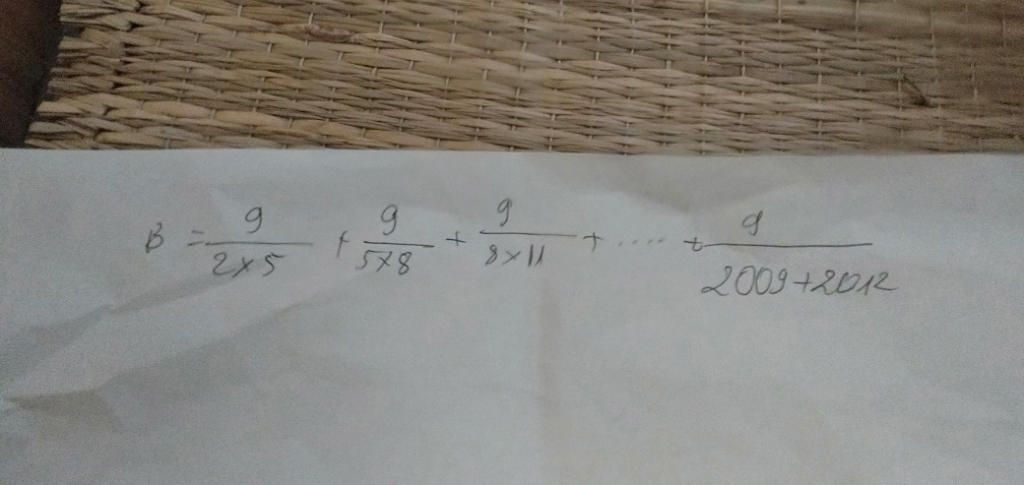 B = 9/2×5 + 9/5×8 + 9/8×11 + .... + 9/2009+2012